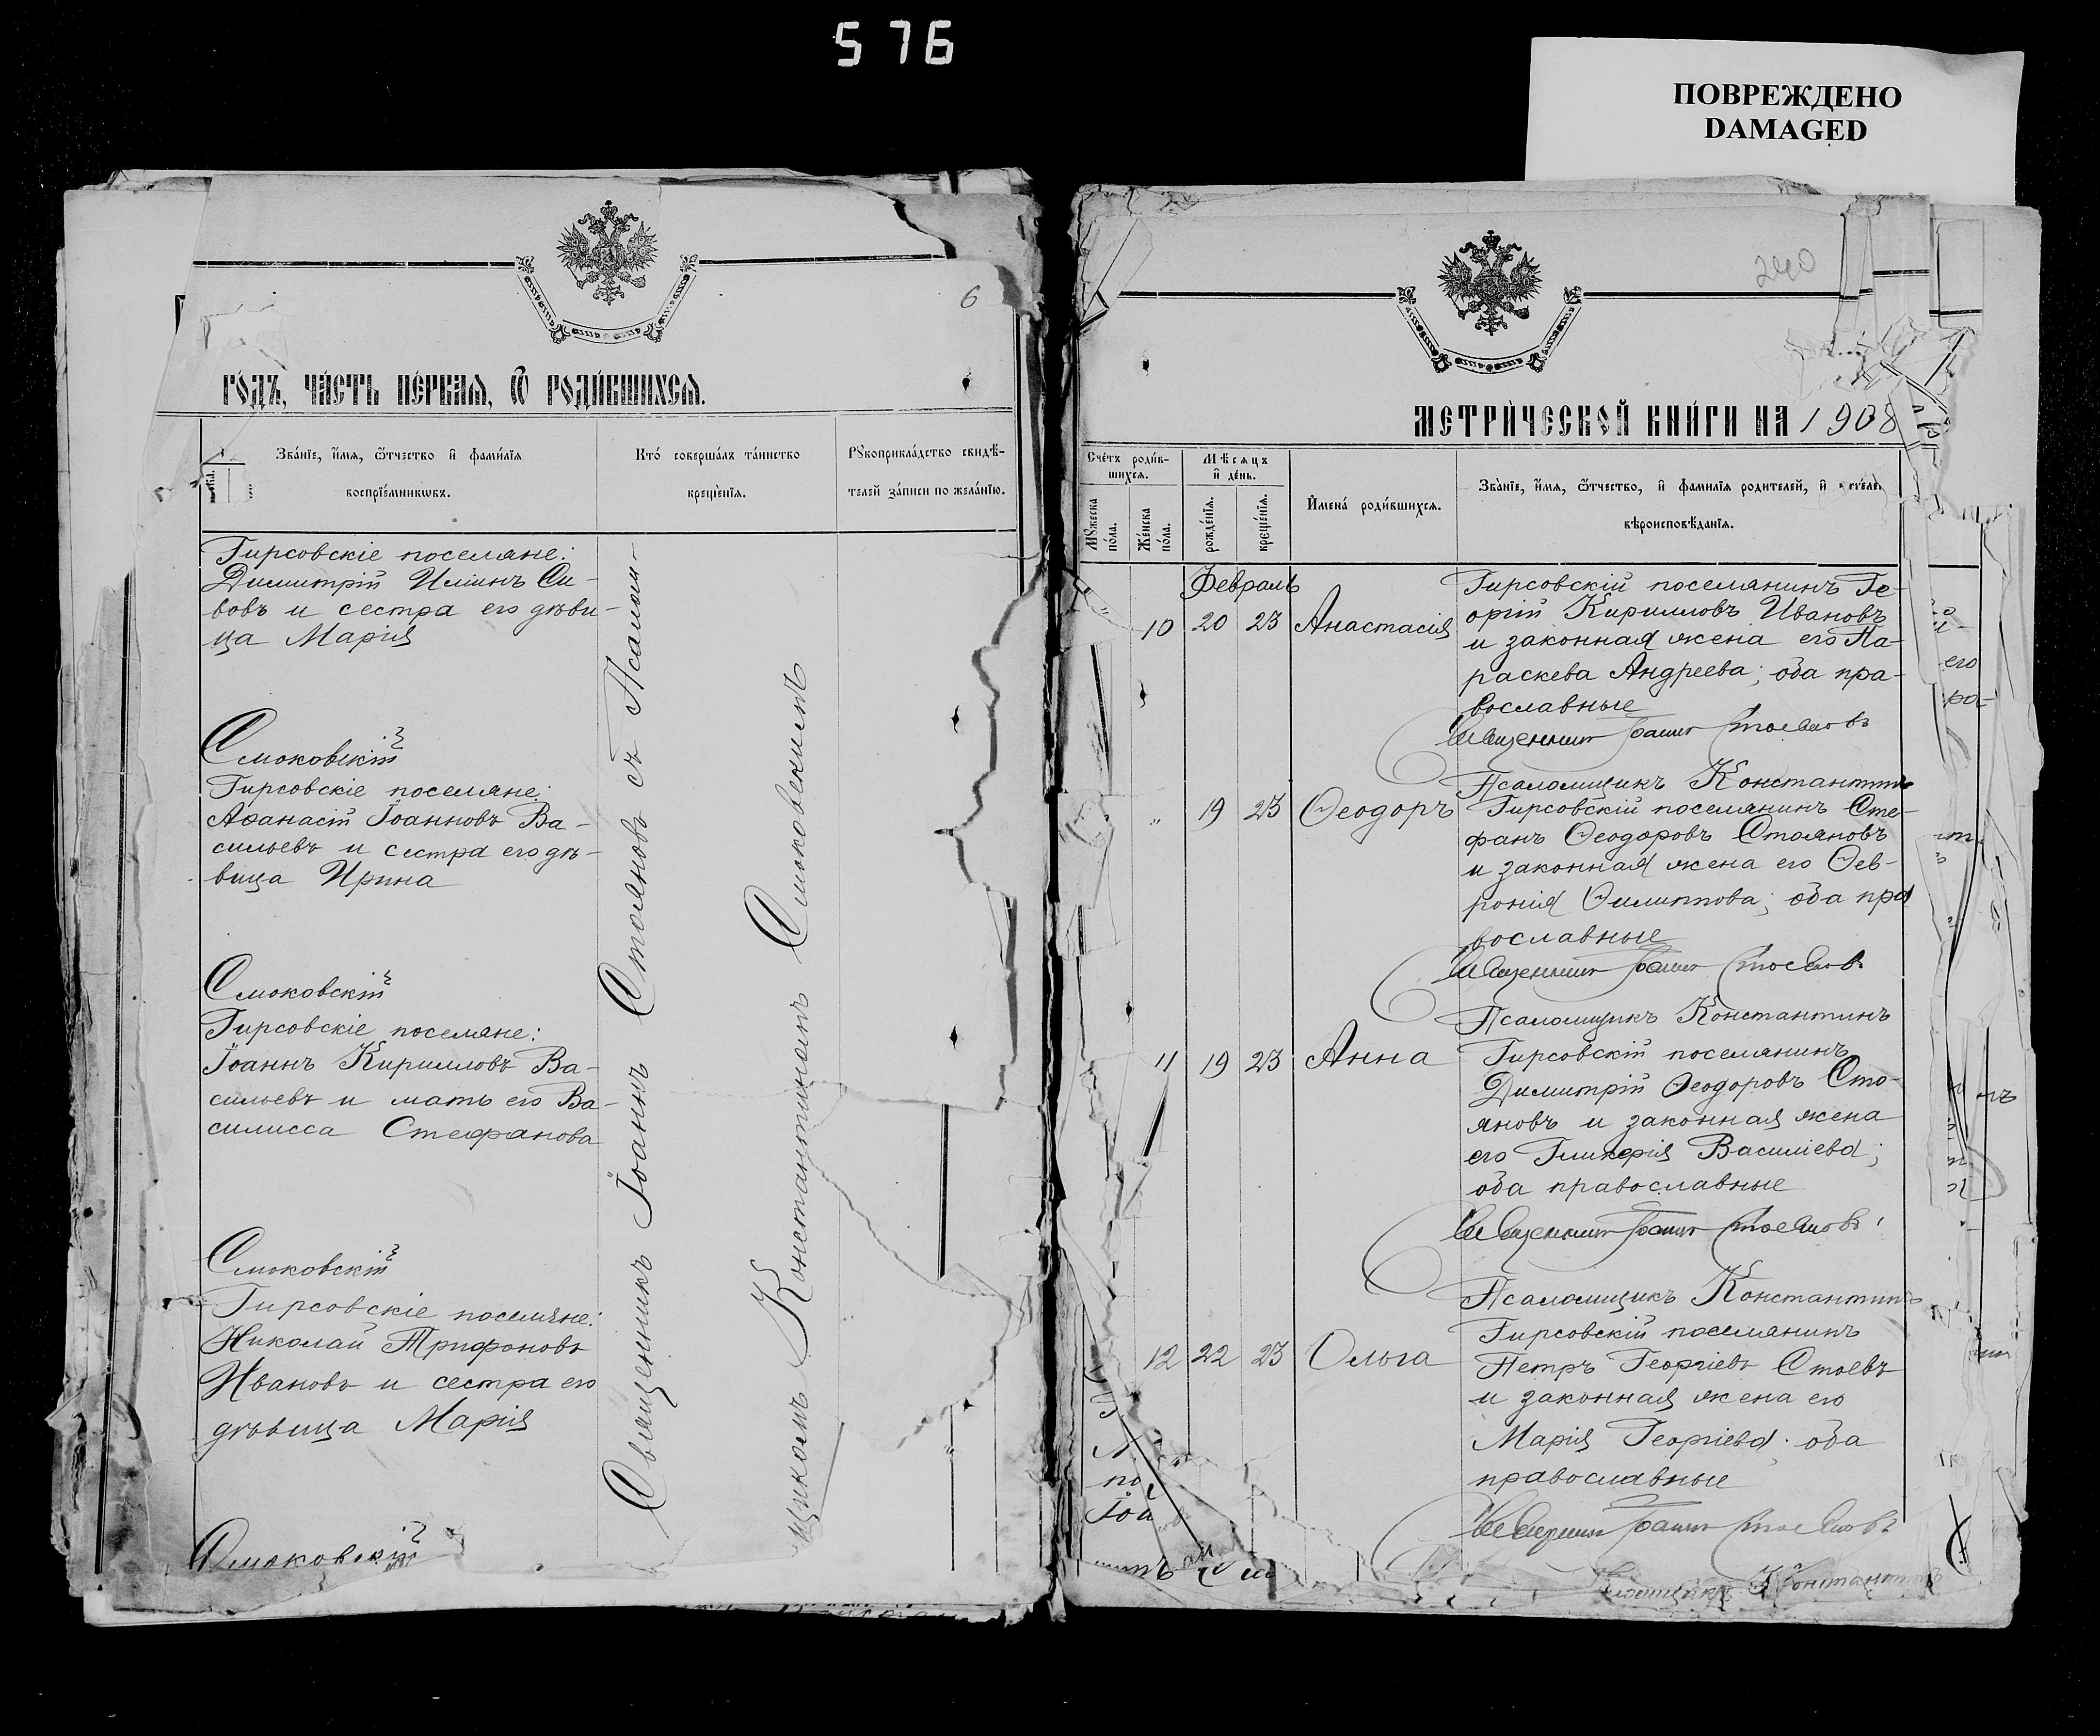 576
ПОВРЕЖДЕНО
DAMAGED
6
ГОДЪ, ЧАСТЬ ПЕРВАЯ, Ѿ РОДИ́ВШИХСЯ.
Зва́нїе, и́мя, ѻ҆́тчество и҆ фами́лїя
воспрїе́мниковъ.
Кто̀ соверша́лъ та́инство
креще́нїя.
Рꙋкоприкла́дство свидѣ́-
телей за́писи по жела́нїю.
Гирсовскіе поселяне:
Димитрій Иліинъ Си-
вовъ и сестра его дѣви-
ца Марія
Смоковскій
Гирсовскіе поселяне:
Аѳанасій Іоанновъ Ва-
сильевъ и сестра его дѣ-
вица Ирина
Смоковскій
Гирсовскіе поселяне:
Іоаннъ Кирилловъ Ва-
сильевъ и мать его Ва-
силисса Стефанова
Смоковскій
Гирсовскіе поселяне:
Николай Трифоновъ
Ивановъ и сестра его
дѣвица Марія
Смоковскій
Священникъ Іоаннъ Стояновъ съ Псалом-
щикомъ Константиномъ Смоковскимъ
240
МЕТРИ́ЧЕСКОЙ КНИ́ГИ НА 1908
Сче́тъ роди́в-
шихся.
Мѣ́сяцъ
и҆ де́нь.
Мꙋжеска
по́ла.
Же́нска
по́ла.
рожде́нїя.
креще́нїя.
И҆мена̀ роди́вшихся.
Зва́нїе, и́мя, ѻ҆́тчество, и҆ фами́лїя роди́телей, и҆
вѣроисповѣ́данїя.
Февраль
10 20 23 Анастасія
Гирсовскій поселянинъ Ге-
оргій Кирилловъ Ивановъ
и законная жена его Па-
раскева Андреева; оба пра-
вославные
Священникъ Іоаннъ Стояновъ
Псаломщикъ Константинъ
" 19 23 Ѳеодоръ
Гирсовскій поселянинъ Сте-
фанъ Ѳеодоровъ Стояновъ
и законная жена его Ѳев-
ронія Филиппова; оба пра
вославные
Священникъ Іоаннъ Стояновъ
Псаломщикъ Константинъ
11 19 23 Анна
Гирсовскій поселянинъ
Димитрій Ѳеодоровъ Сто-
яновъ и законная жена
его Гликерія Василіева;
оба православные
Священникъ Іоаннъ Стояновъ
Псаломщикъ Константинъ
12 22 23 Ольга
Гирсовскій поселянинъ
Петръ Георгіевъ Стоевъ
и законная жена его
Марія Георгіева; оба
православные
Священникъ Іоаннъ Стояновъ
Константинъ
его